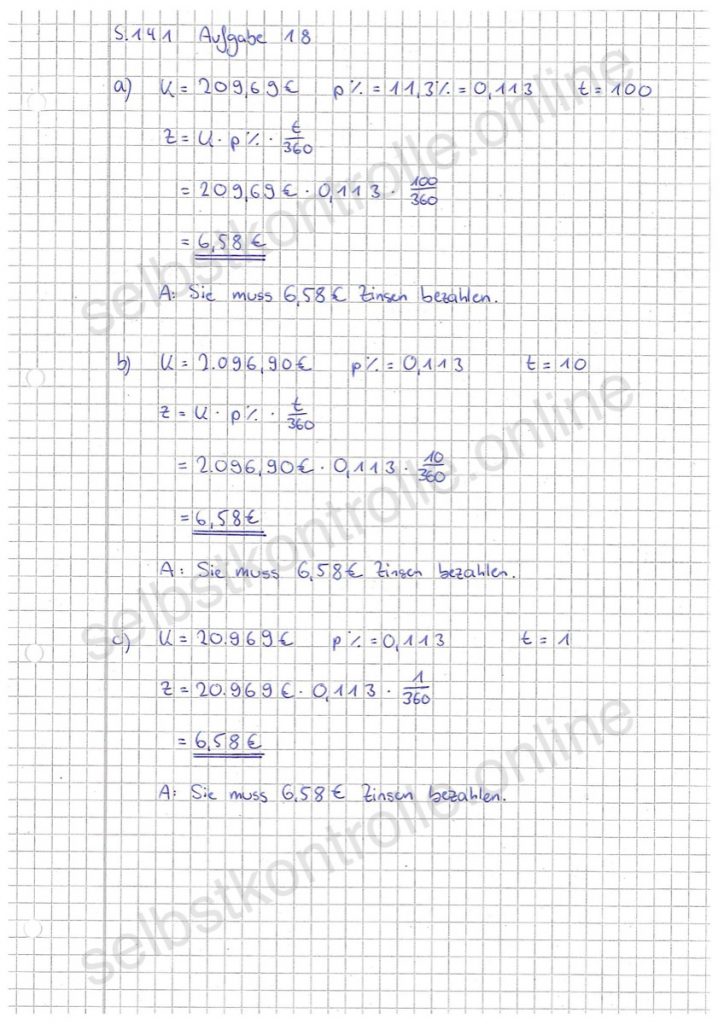 S.141 Aufgabe 18
a) K = 209,69€ p% = 11,3% = 0,113 t = 100
Z = K · p% · t/360
= 209,69€ · 0,113 · 100/360
= 6,58€
A: Sie muss 6,58€ Zinsen bezahlen.
b) K = 2.096,90€ p% = 0,113 t = 10
Z = K · p% · t/360
= 2.096,90€ · 0,113 · 10/360
= 6,58€
A: Sie muss 6,58€ Zinsen bezahlen.
c) K = 20.969€ p% = 0,113 t = 1
Z = 20.969€ · 0,113 · 1/360
= 6,58€
A: Sie muss 6,58€ Zinsen bezahlen.
selbstkontrolle.online
selbstkontrolle.online
selbstkontrolle.online